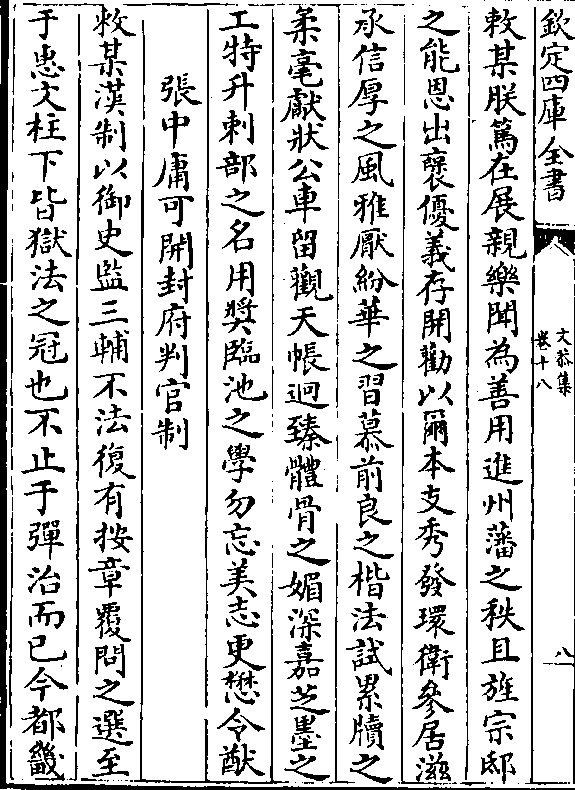 欽定四庫全書
文恭集
卷十八
八
敕某朕篤在展親樂聞為善用進州藩之秩且旌宗邸
之能恩出襃優義存開勸以爾本支秀發環衛參居滋
承信厚之風雅厭紛華之習慕前良之楷法試累牘之
柔毫獻狀公車留觀天帳迥臻體骨之媚深嘉芝墨之
工特升刺部之名用奨臨池之學勿忘美志更懋令猷
張中庸可開封府判官制
敕某漢制以御史監三輔不法復有按章覆問之選至
于惠文柱下皆獄法之冠也不止于彈治而已今都畿